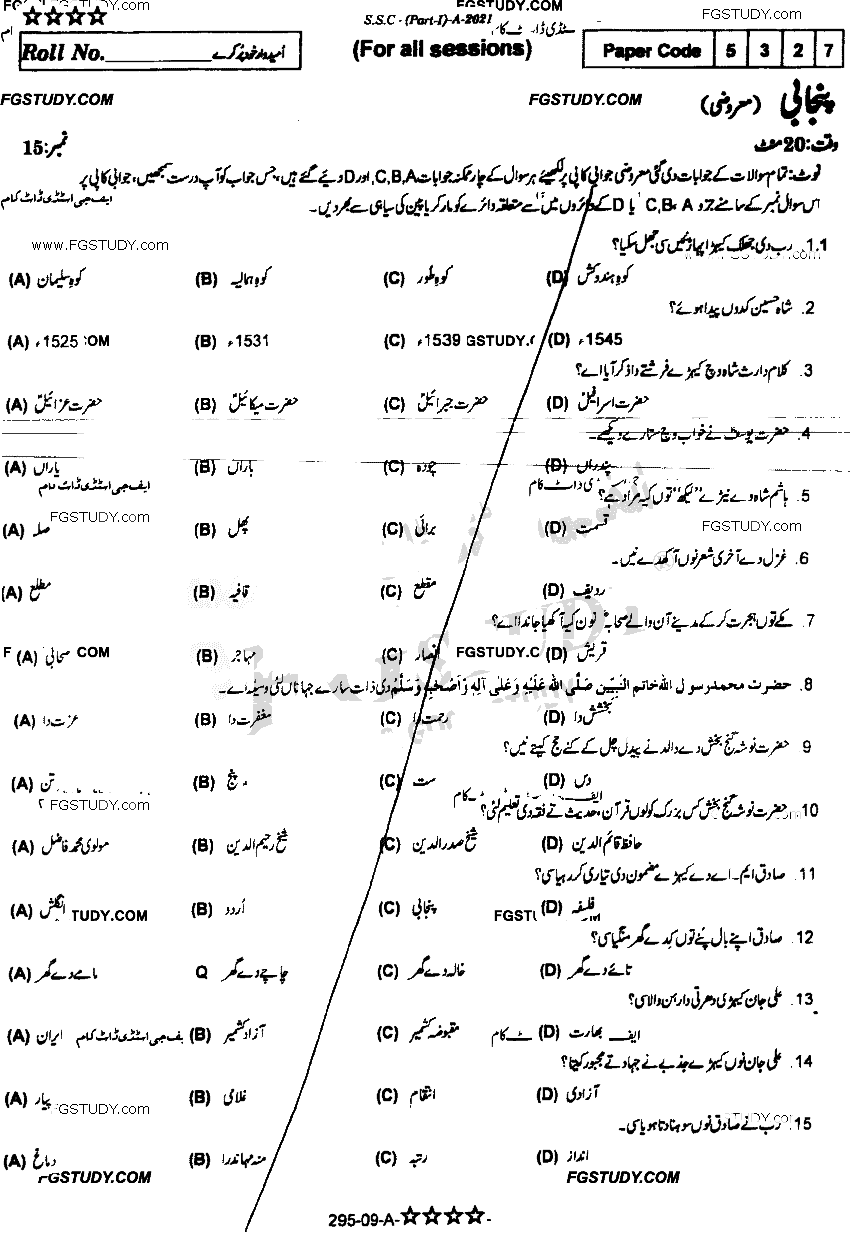 FGSTUDY.COM
FGSTUDY.COM
☆☆☆☆
S.S.C - (Part-I)-A-2021
Roll No.__________ امیدوار خود پُر کرے
(For all sessions)
Paper Code 5 3 2 7
FGSTUDY.COM
FGSTUDY.COM
پنجابی (معروضی)
وقت:20 منٹ
نمبر:15
نوٹ: تمام سوالات کے جوابات دی گئی معروضی جوابی کاپی پر لکھیئے ہر سوال کے چار ممکنہ جوابات C,B,A اور D دیئے گئے ہیں، جس جواب کو آپ درست سمجھیں، جوابی کاپی پر
اس سوال نمبر کے سامنے دیے گئے C,B,A یا D کے دائروں میں سے متعلقہ دائرے کو مارکر یا پین کی سیاہی سے بھر دیں۔
ایف جی اسٹڈی ڈاٹ کام
www.FGSTUDY.com
1.1 رب دی جھلک کیہڑا پہاڑ نہیں سی جھل سکیا؟
(A) کوہ سلیمان (B) کوہ ہمالیہ (C) کوہ طور (D) کوہ ہندوکش
2. شاہ حسین کدوں پیدا ہوئے؟
(A) 1525ء (B) 1531ء (C) 1539ء (D) 1545ء
3. کلام وارث شاہ وچ کیہڑے فرشتے دا ذکر آیا اے؟
(A) حضرت عزائیلؑ (B) حضرت میکائیلؑ (C) حضرت جبرائیلؑ (D) حضرت اسرافیلؑ
4. حضرت یوسفؑ نے خواب وچ ستارے ویکھے۔
(A) یاراں (B) باراں (C) چودہ (D) پندراں
ایف جی اسٹڈی ڈاٹ کام
5. ہاشم شاہ دے نیڑے "لیکھ" توں کیہ مراد ہے؟
FGSTUDY.com
FGSTUDY.com
(A) صلہ (B) پھل (C) برائی (D) قسمت
6. غزل دے آخری شعر نوں آکھدے نیں۔
(A) مطلع (B) قافیہ (C) مقطع (D) ردیف
7. مکے توں ہجرت کر کے مدینے آن والے صحابہؓ نوں کیہ آکھیا جاندا اے؟
(A) صحابی (B) مہاجر (C) انصار (D) قریش
8. حضرت محمد رسول اللہ خاتم النبیین صَلَّی اللہ عَلَیْهِ وَعَلٰی آلِهٖ وَاَصْحٰبِهٖ وَسَلَّمْ دی ذات سارے جہاناں لئی وسیلہ اے۔
(A) عزت دا (B) مغفرت دا (C) رحمت دا (D) بخشش دا
9 حضرت نوشہ گنج بخش دے والد نے پیدل چل کے کنے حج کیتے نیں؟
(A) تن (B) پنج (C) ست (D) دس
FGSTUDY.com
10. حضرت نوشہ گنج بخش کس بزرگ کولوں قرآن، حدیث تے فقہ دی تعلیم لئی؟
(A) مولوی محمد فاضل (B) شیخ رحیم الدین (C) شیخ صدرالدین (D) حافظ قائم الدین
11. صادق ایم۔اے دے کیہڑے مضمون دی تیاری کر رہیا سی؟
(A) انگلش (B) اُردو (C) پنجابی (D) فلسفہ
12. صادق اپنے بال پنے توں کِدے گھر منگیا سی؟
(A) مامے دے گھر Q چاچے دے گھر (C) خالہ دے گھر (D) تائے دے گھر
13. علی جان کیہڑی دھرتی دا رہن والا سی؟
(A) ایران (B) آزاد کشمیر (C) مقبوضہ کشمیر (D) بھارت
14. علی جان نوں کیہڑے جذبے نے جہاد تے مجبور کیتا؟
(A) پیار (B) غلامی (C) انتقام (D) آزادی
FGSTUDY.com
15. رب نے صادق نوں سوہنا دتا ہویا سی۔
(A) دماغ (B) منہ مہاندرا (C) رتبہ (D) انداز
FGSTUDY.COM
FGSTUDY.COM
295-09-A-☆☆☆☆-